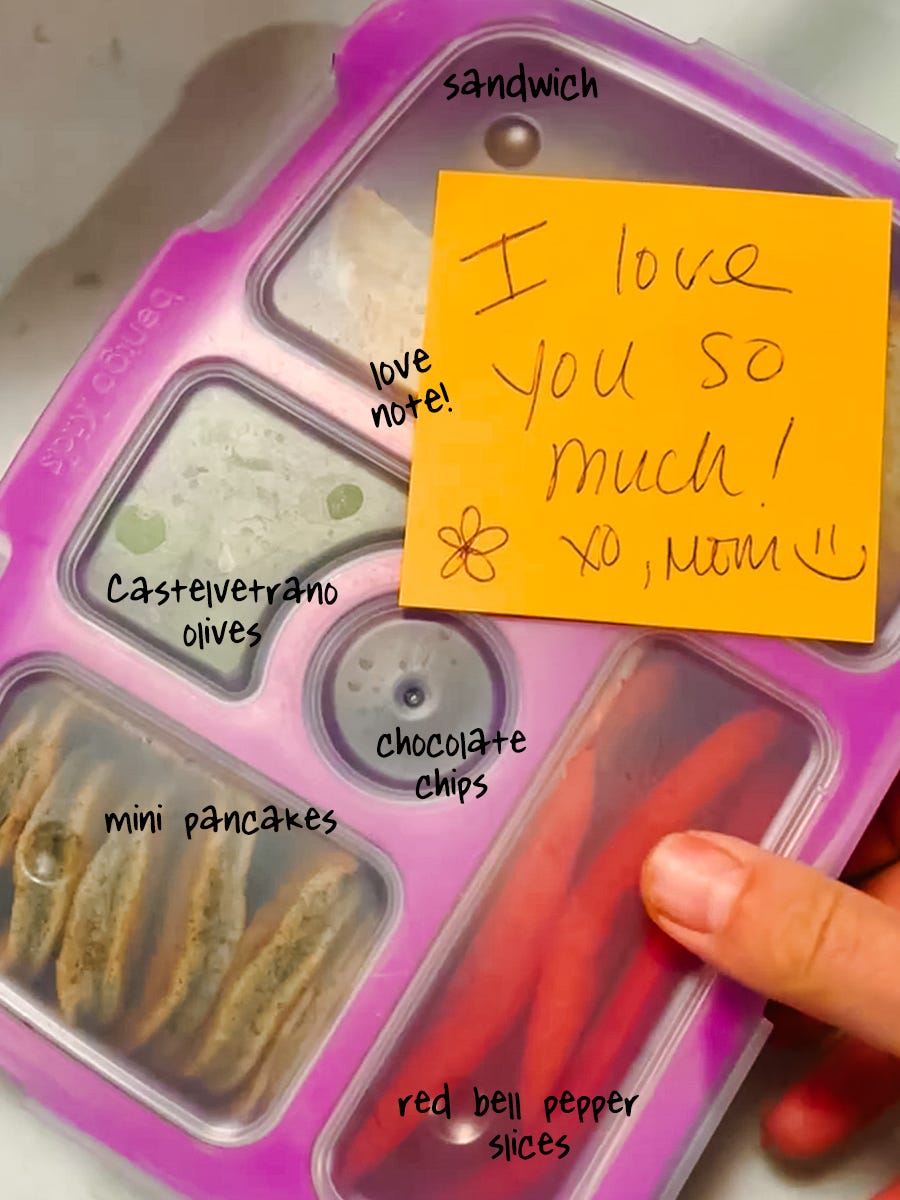 sandwich
I love
you so
much!
xo, Mom
love
note!
bentgo kids
Castelvetrano
olives
chocolate
chips
mini pancakes
red bell pepper
slices